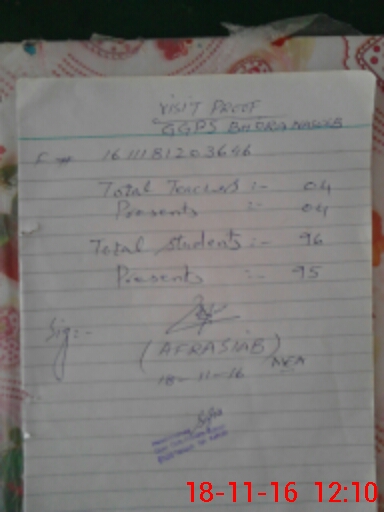 VISIT PROOF
GGPS BHORA NASWAB
F # 161118120 3646
Total Teachers :- 04
Presents :- 04
Total Students :- 96
Presents :- 95
Sig:-
(AFRASIAB)
MEA
18-11-16
18-11-16 12:10